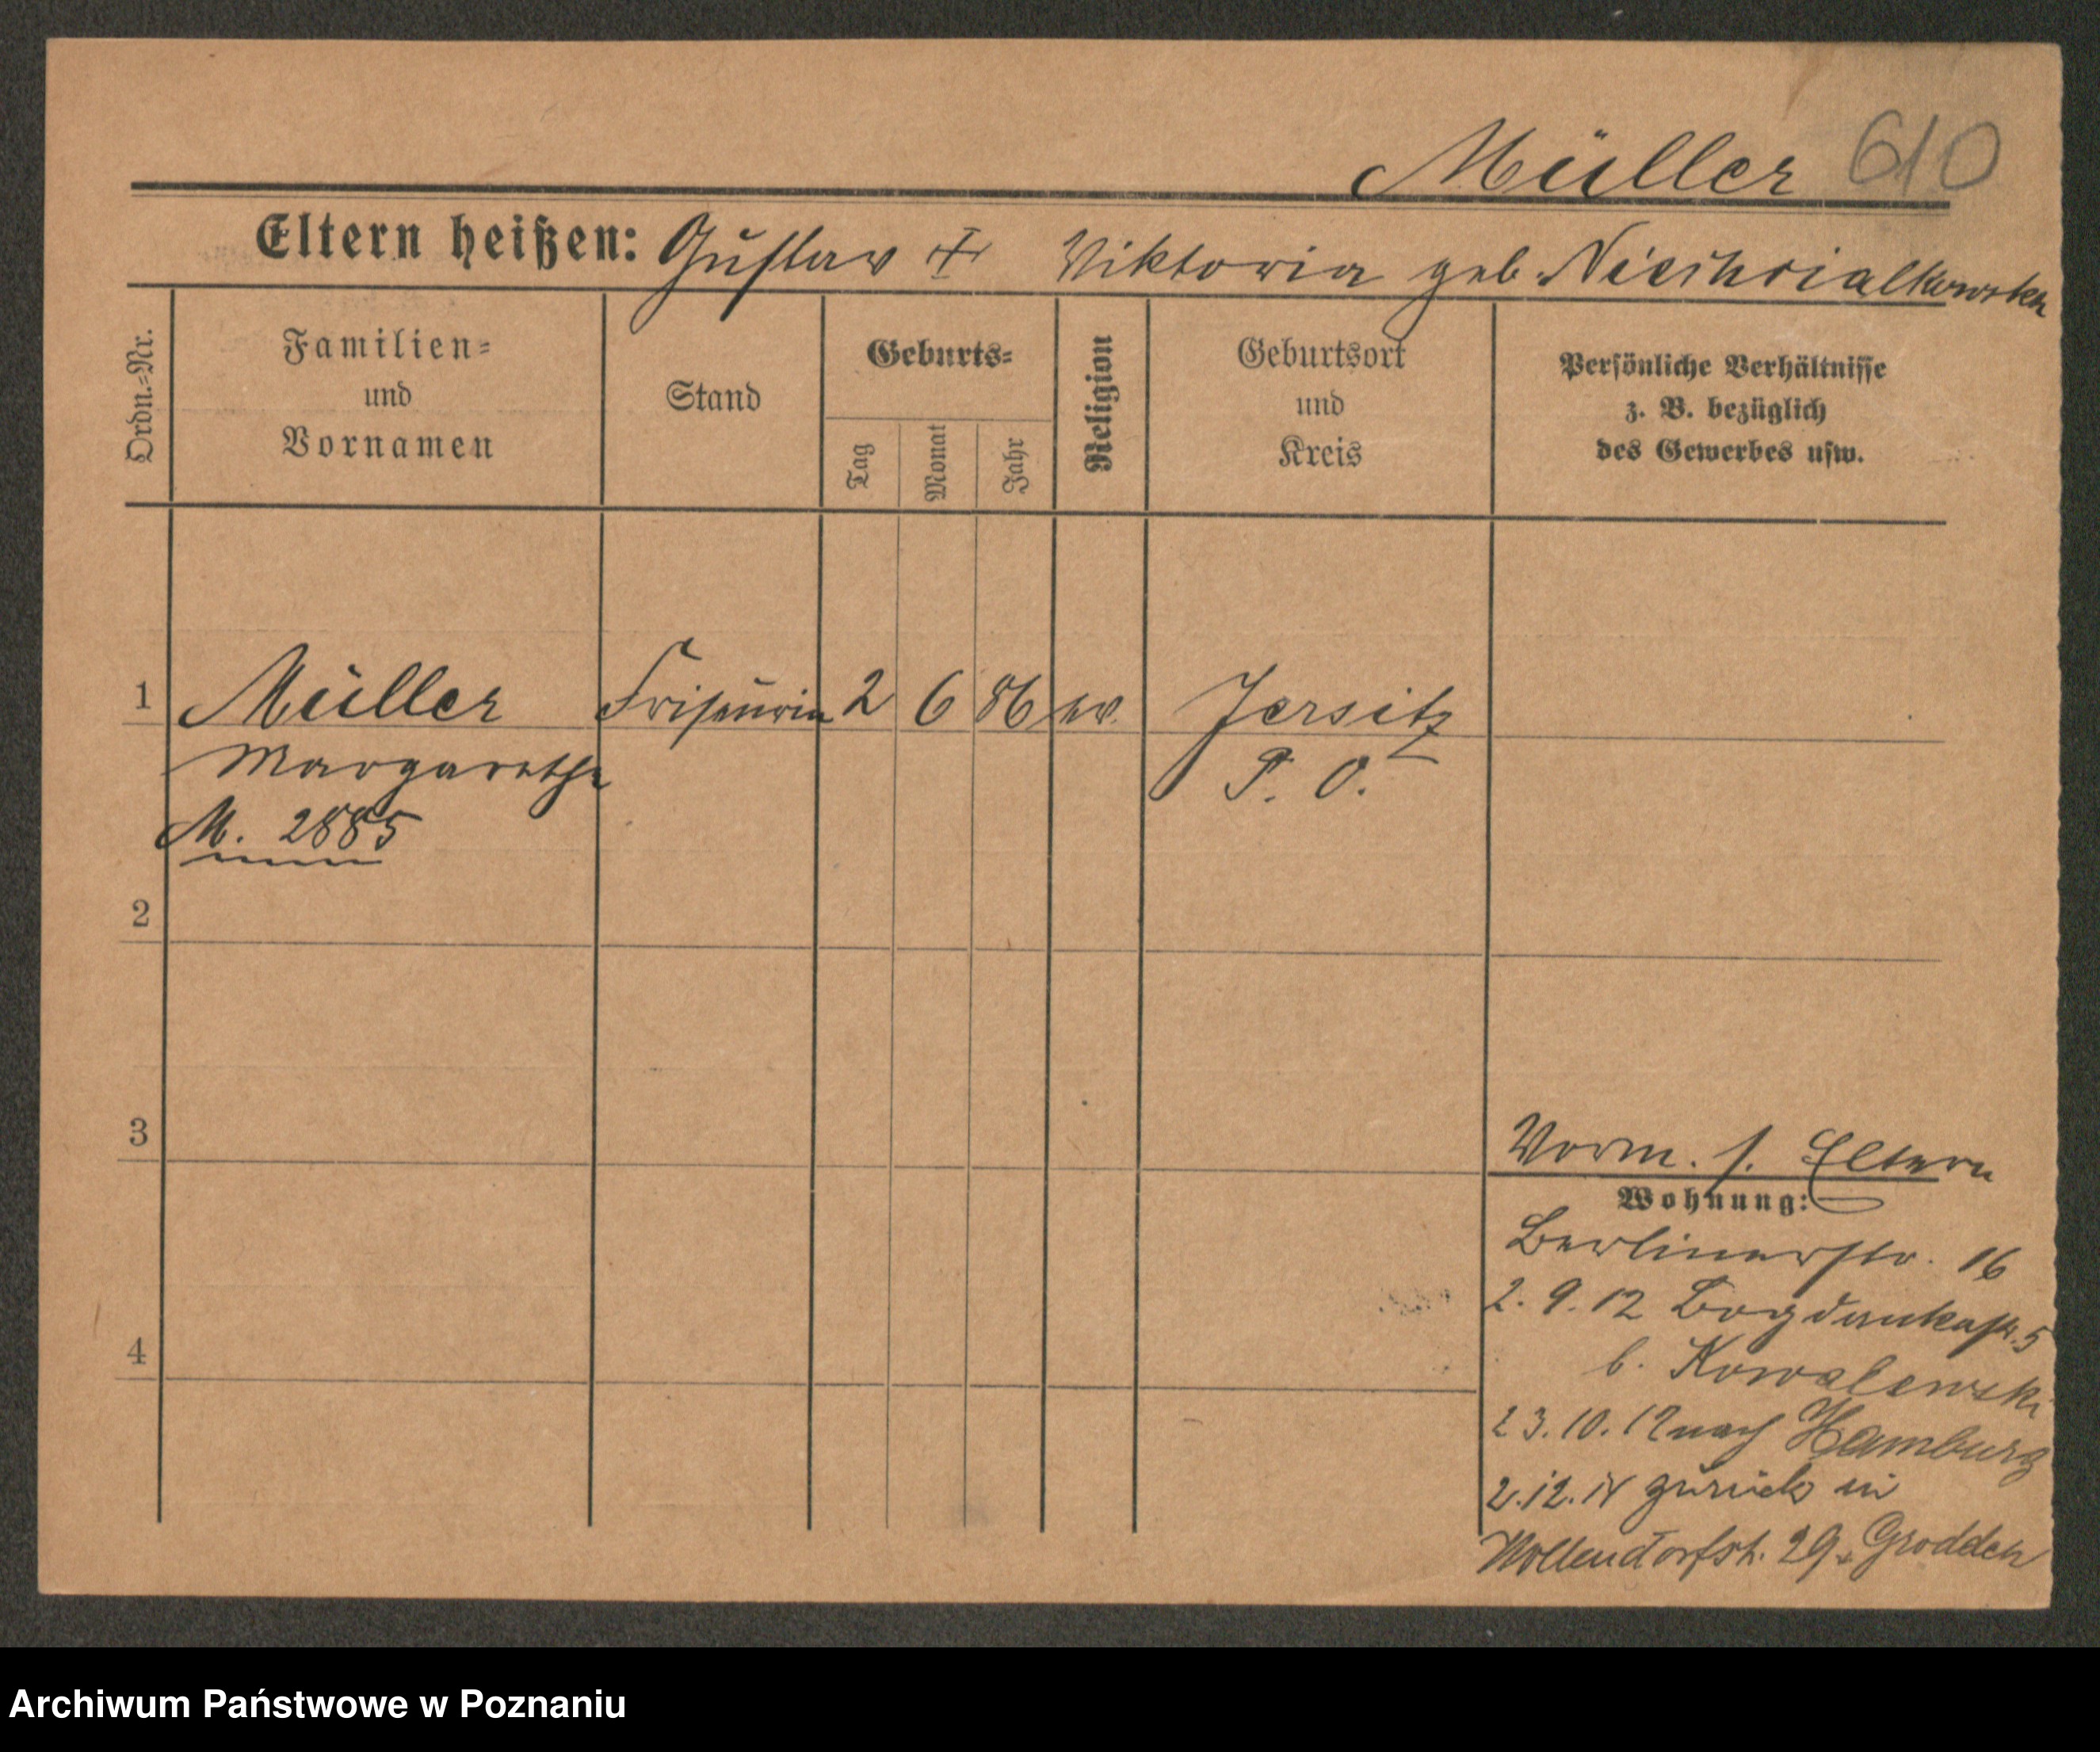 Müller 610
Eltern heißen: Gustav + Viktoria geb.
Ordn.-Nr.
Familien-
und
Vornamen
Stand
Geburts-
Tag
Monat
Jahr
Religion
Geburtsort
und
Kreis
Persönliche Verhältnisse
z. B. bezüglich
des Gewerbes usw.
1 Müller Friseurin 2 6 86 ev. Jersitz
Margarethe P. O.
M. 2885
2
3
Vorm. s. Eltern
Wohnung:
Berlinerstr. 16
2. 9. 12 Bogdankastr. 5
4
b. Kowalewski
23. 10. 12 nach Hamburg
2. 12. 14 zurück in
29